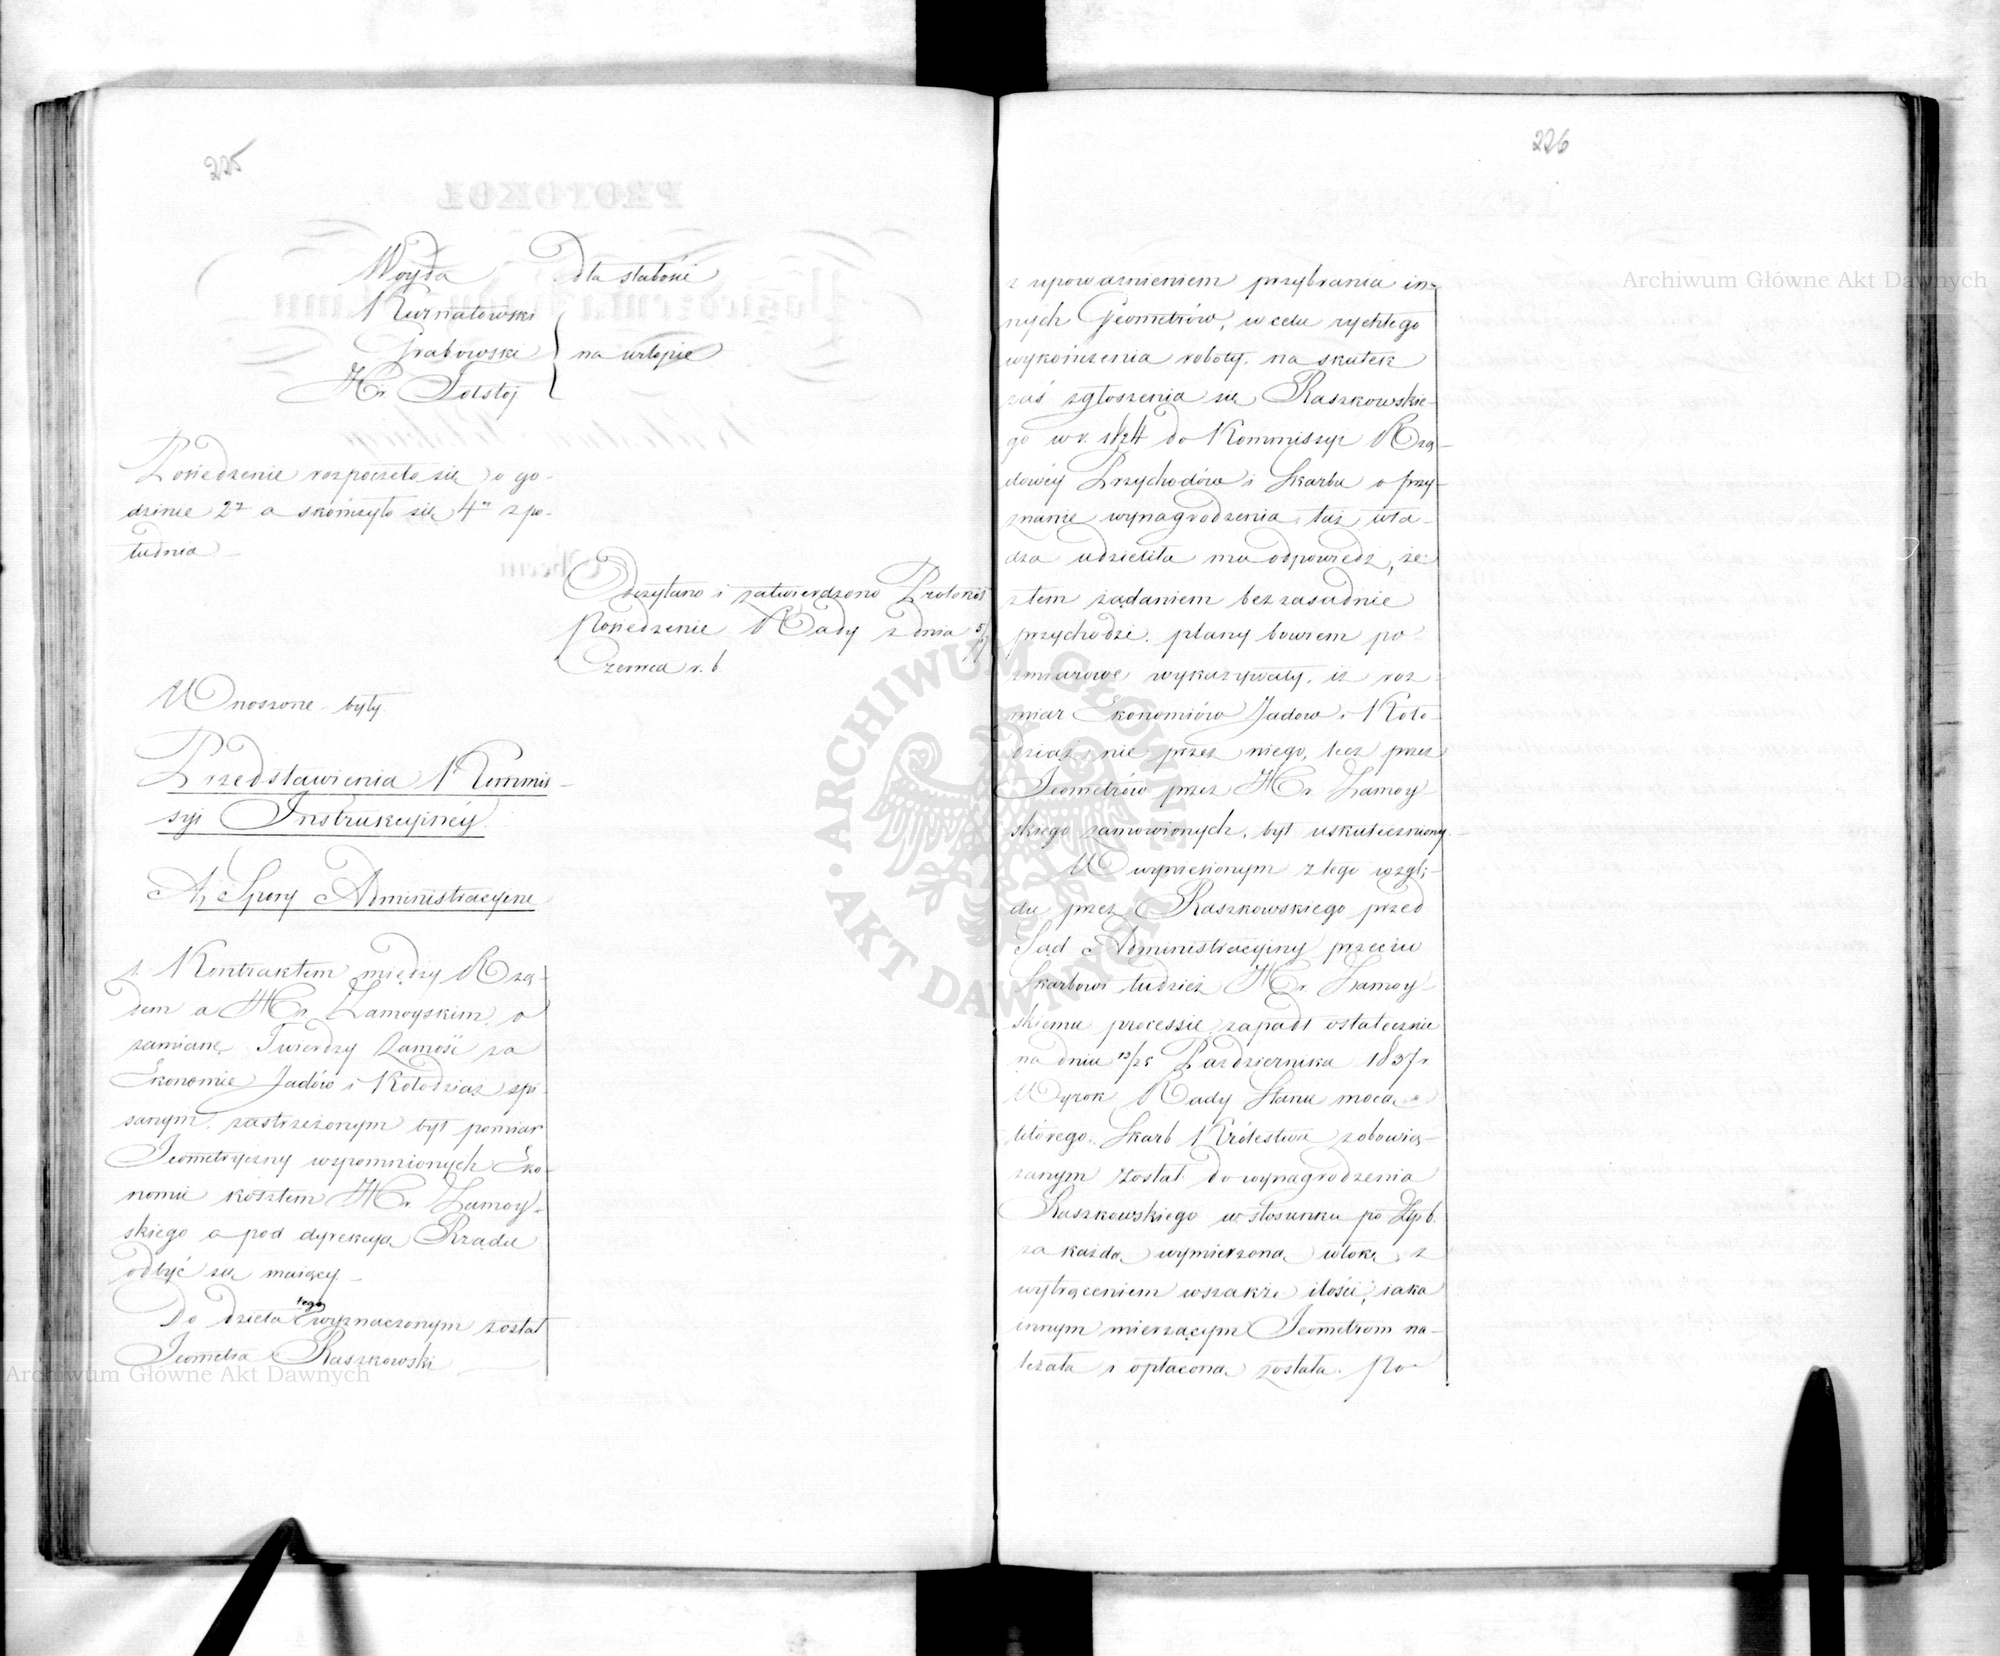 225
Woyda dla słabości
Kurnatowski
Grabowski na urlopie
Hr. Tołstoj
Posiedzenie rozpoczęło się o go-
dzinie 2ej a skończyło się 4ej z po-
łudnia
Odczytano i zatwierdzono Protokół
Posiedzenie Rady z dnia
Czerwca r. b.
Wnoszone były
Przedstawienia Kommis-
syi Instrukcyinéy
A, Spory Administracyjne
1. Kontraktem między Rzą-
dem a Hr. Zamoyskim o
zamianę Twierdzy Zamość za
Ekonomie Jadów i Kołodziąż spi-
sanym, zastrzeżonym był pomiar
Jeometryczny wspomnionych Eko-
nomii kosztem Hr. Zamoy-
skiego a pod dyrekcyą Rządu
odbyć się maiący
Do dzieła tego wyznaczonym został
Jeometra Raszkowski
226
z upoważnieniem przybrania in-
nych Jeometrów, w celu rychłego
wykończenia roboty. na skutek
zaś zgłoszenia się Raszkowskie-
go w r. 1824 do Kommissyi Rzą-
dowéy Przychodów i Skarbu o przy-
znanie wynagrodzenia, taż wła-
dza udzieliła mu odpowiedź, że
z tem żądaniem bezzasadnie
przychodzi. plany bowiem po-
zmiarowe wykazywały, iż roz-
miar Ekonomiów Jadow i Koło-
dziąż, nie przez niego, lecz przez
Jeometrów przez Hr. Zamoy-
skiego zamowionych, był uskuteczniony
W wyniesionym z tego wzglę-
du przez Raszkowskiego przed
Sąd Administracyjny przeciw
Skarbowi tudzież Hr. Zamoy-
skiemu processie, zapadł ostatecznie
na dniu 13/25 Października 1837 r.
Wyrok Rady Stanu mocą
którego, Skarb Królestwa zobowią-
zanym został do wynagrodzenia
Raszkowskiego w stosunku po Złp 6.
za każdą wymierzoną włokę z
wytrąceniem wszakże ilości, jaka
innym mierzącym Jeometrom na-
leżała i opłaconą została. Po-
Archiwum Główne Akt Dawnych
Archiwum Główne Akt Dawnych
ARCHIWUM GŁÓWNE AKT DAWNYCH